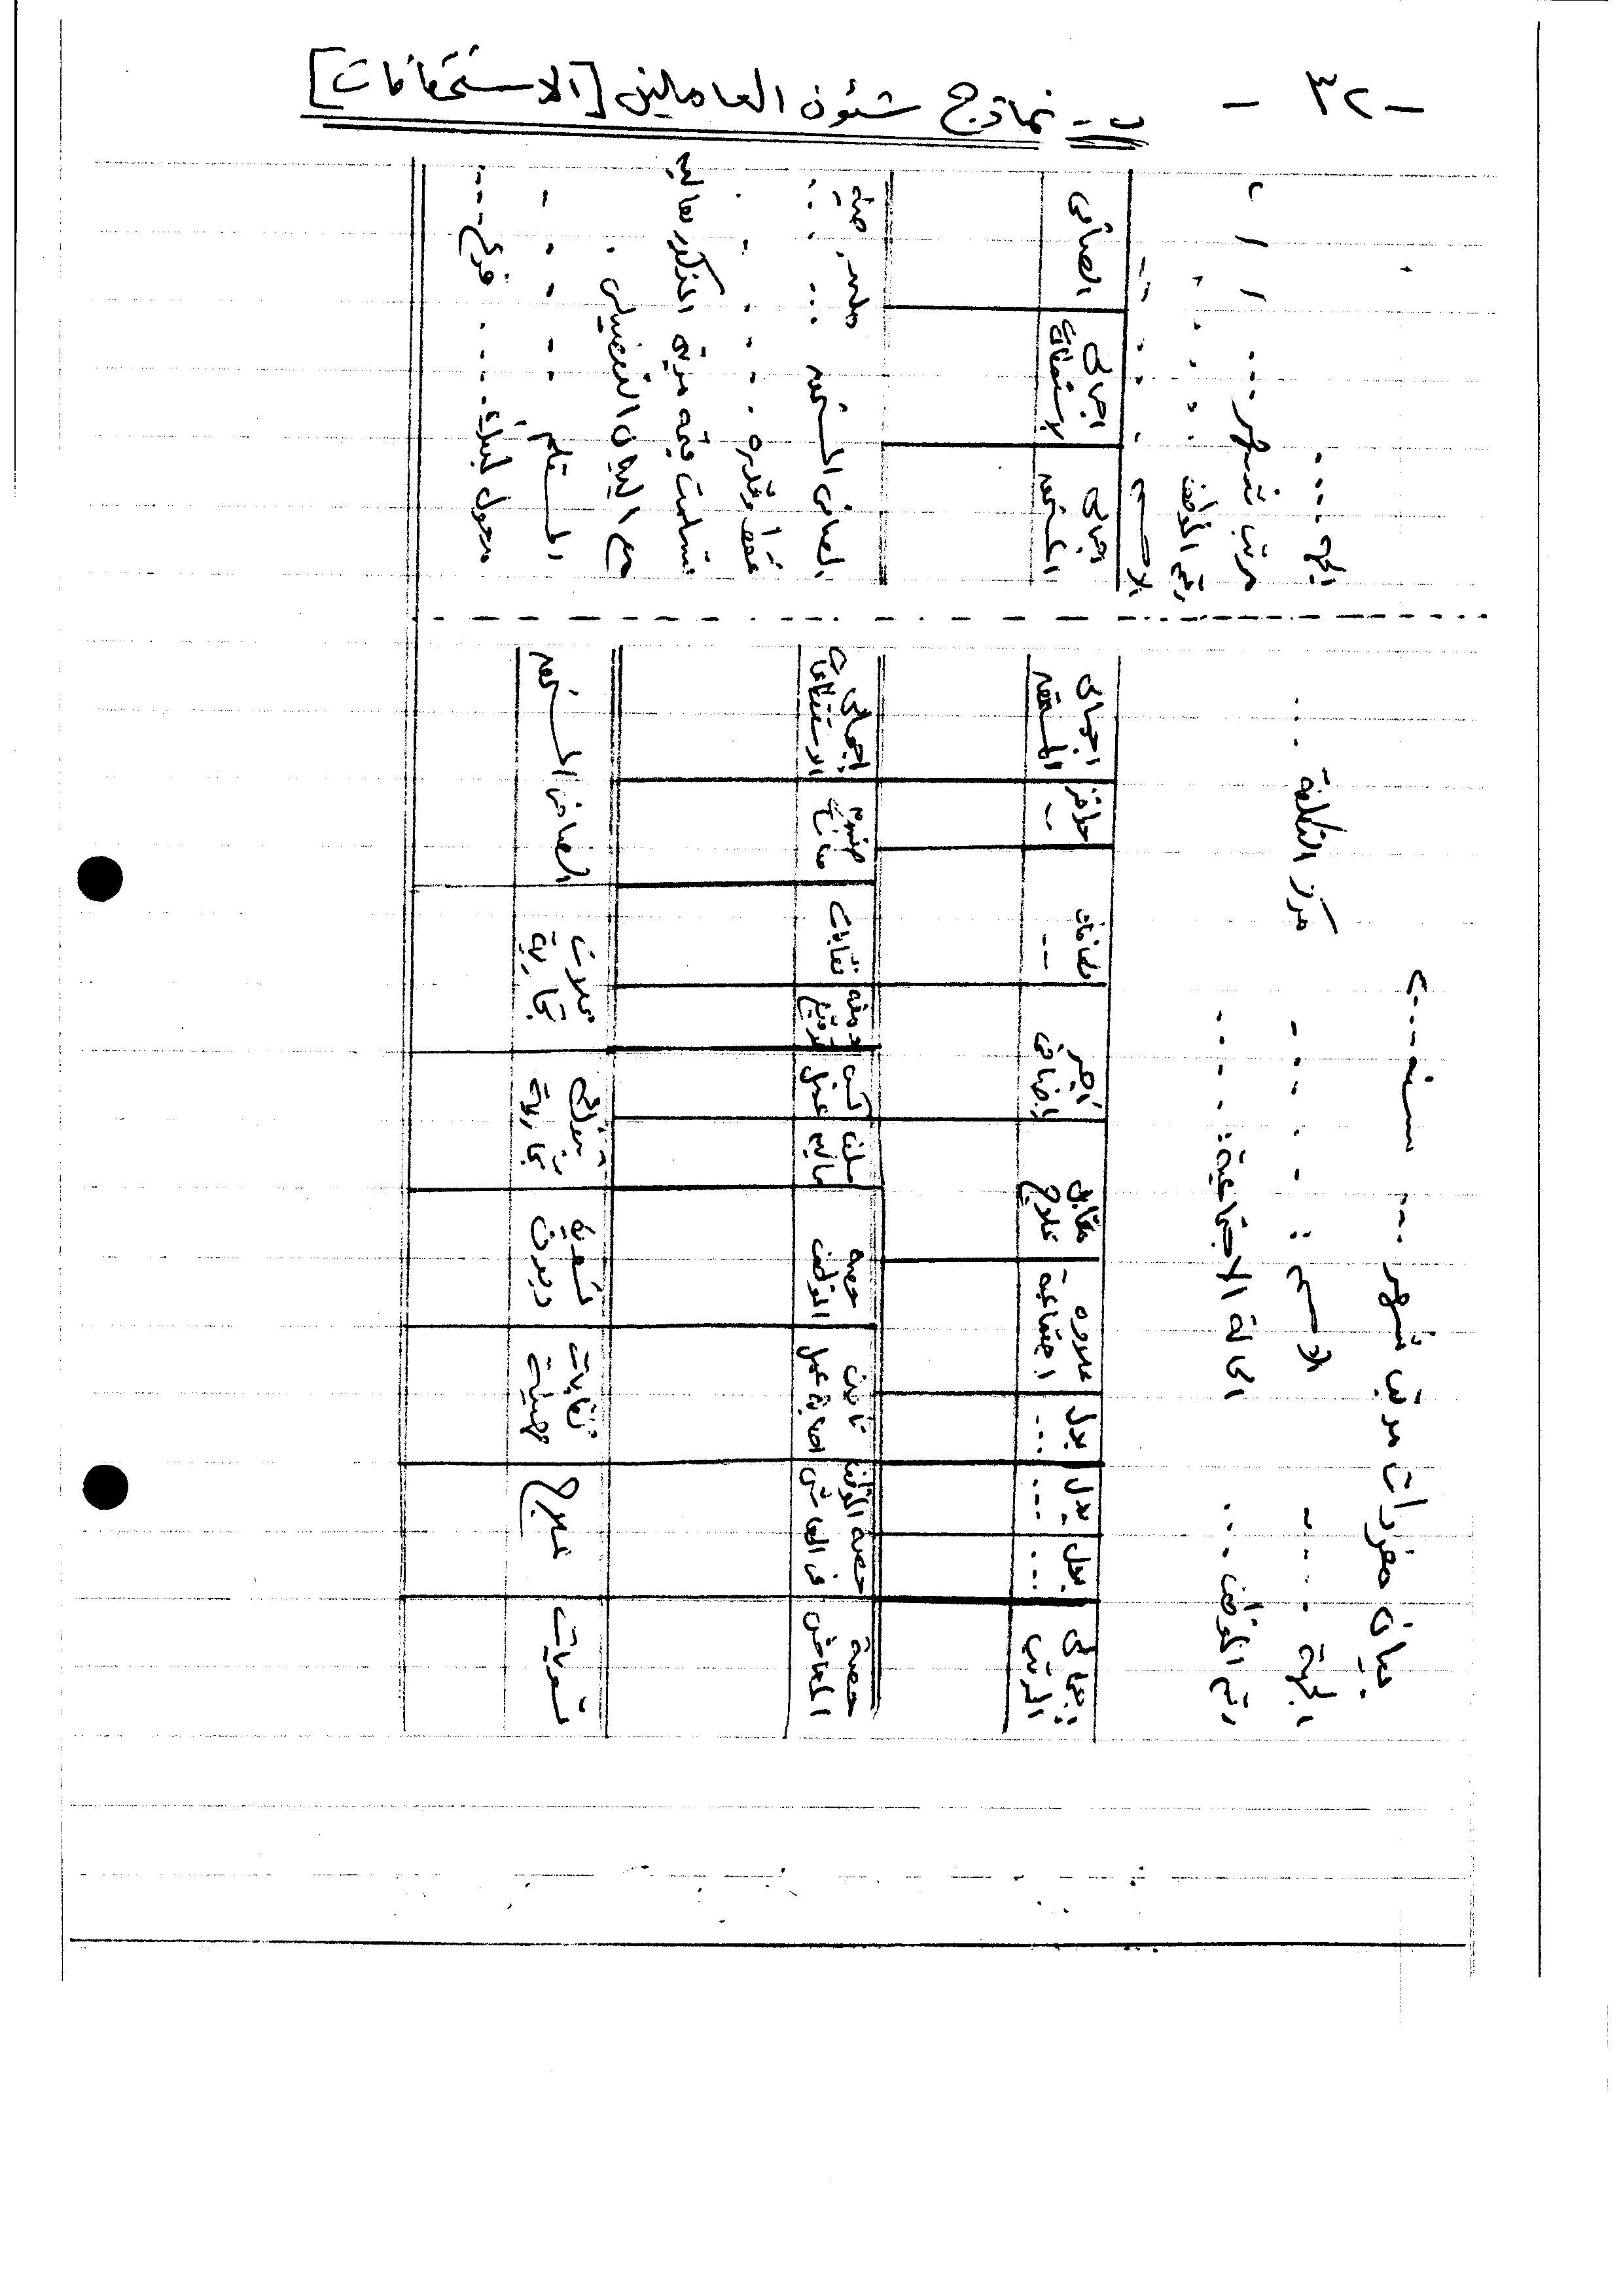 - ٣٢ -
ب - نماذج شئون العاملين [الاستحقاقات]
بيان مفردات مرتب شهر ... سنة ...
الجهة ..... الاسم : ..... مركز التكلفة ...
رقم الموظف ... الحالة الاجتماعية : ....
اجمالى المرتب
بدل ...
بدل ...
بدل ...
علاوه اجتماعية
مقابل علاج
أجر إضافى
حوافز ..
اجمالى المستحق
حصة المعاش
حصة الموظف فى المعاش
تأمين اصابة عمل
حصة الموظف
كسب عمل
نقابات
اجمالى الاستقطاعات
تسويات
علاج
نقابات
ديون
الصافى المستحق
الجهة ....
مرتب شهر ... / /
رقم الموظف ....
الاسم ....
اجمالى المستحق
اجمالى الاستقطاعات
الصافى
الصافى المستحق ... مليم ... جنيه
فقط وقدره ....
تسلمت قيمة مرتبى المذكور عاليه
مع البيان التفصيلى .
المستلم ....
محول لبنك .... فرع ....